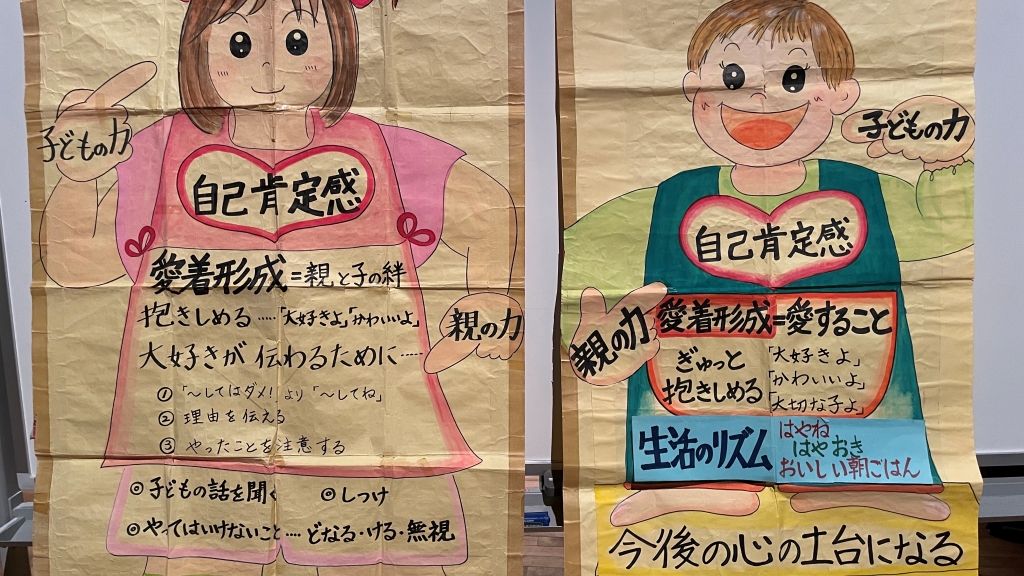 子どもの力
自己肯定感
愛着形成=親と子の絆
抱きしめる……「大好きよ」「かわいいよ」
親の力
大好きが伝わるために……
①「〜してはダメ!」より「〜してね」
②理由を伝える
③やったことを注意する
◎子どもの話を聞く ◎しつけ
◎やってはいけないこと…どなる・ける・無視
子どもの力
自己肯定感
親の力
愛着形成=愛すること
ぎゅっと
抱きしめる
「大好きよ」
「かわいいよ」
「大切な子よ」
生活のリズム
はやね
はやおき
おいしい朝ごはん
今後の心の土台になる